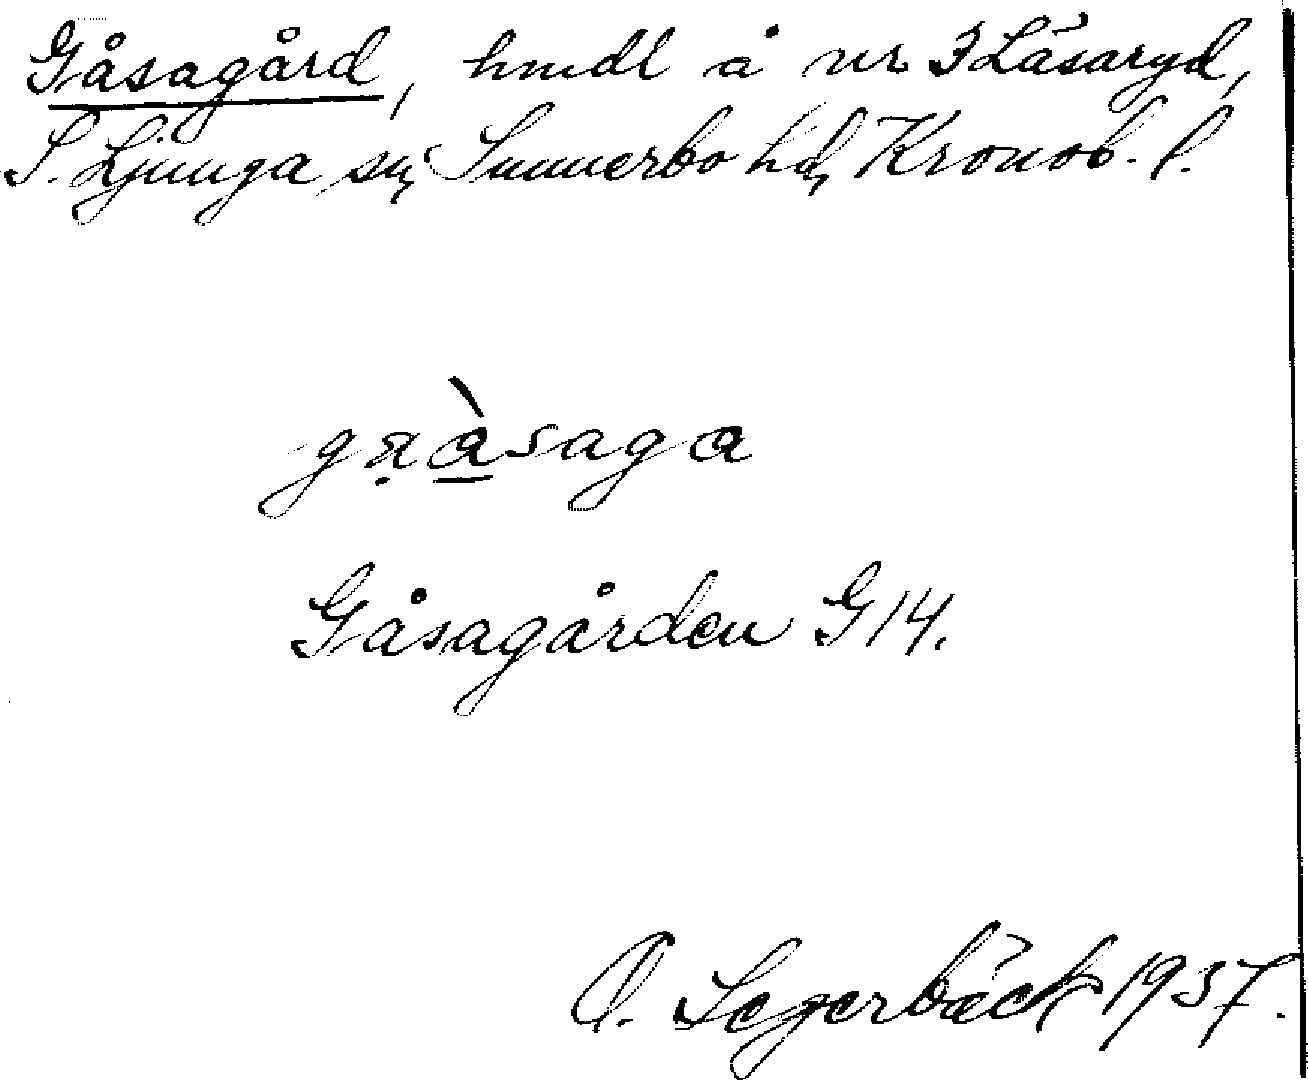 Gåsagård, hmdl å nr 3 Läsaryd,
S. Ljunga sn, Sunnerbo hd, Kronob. l.
gạàsaga
Gåsagården G 14.
O. Segerbäck 1937.